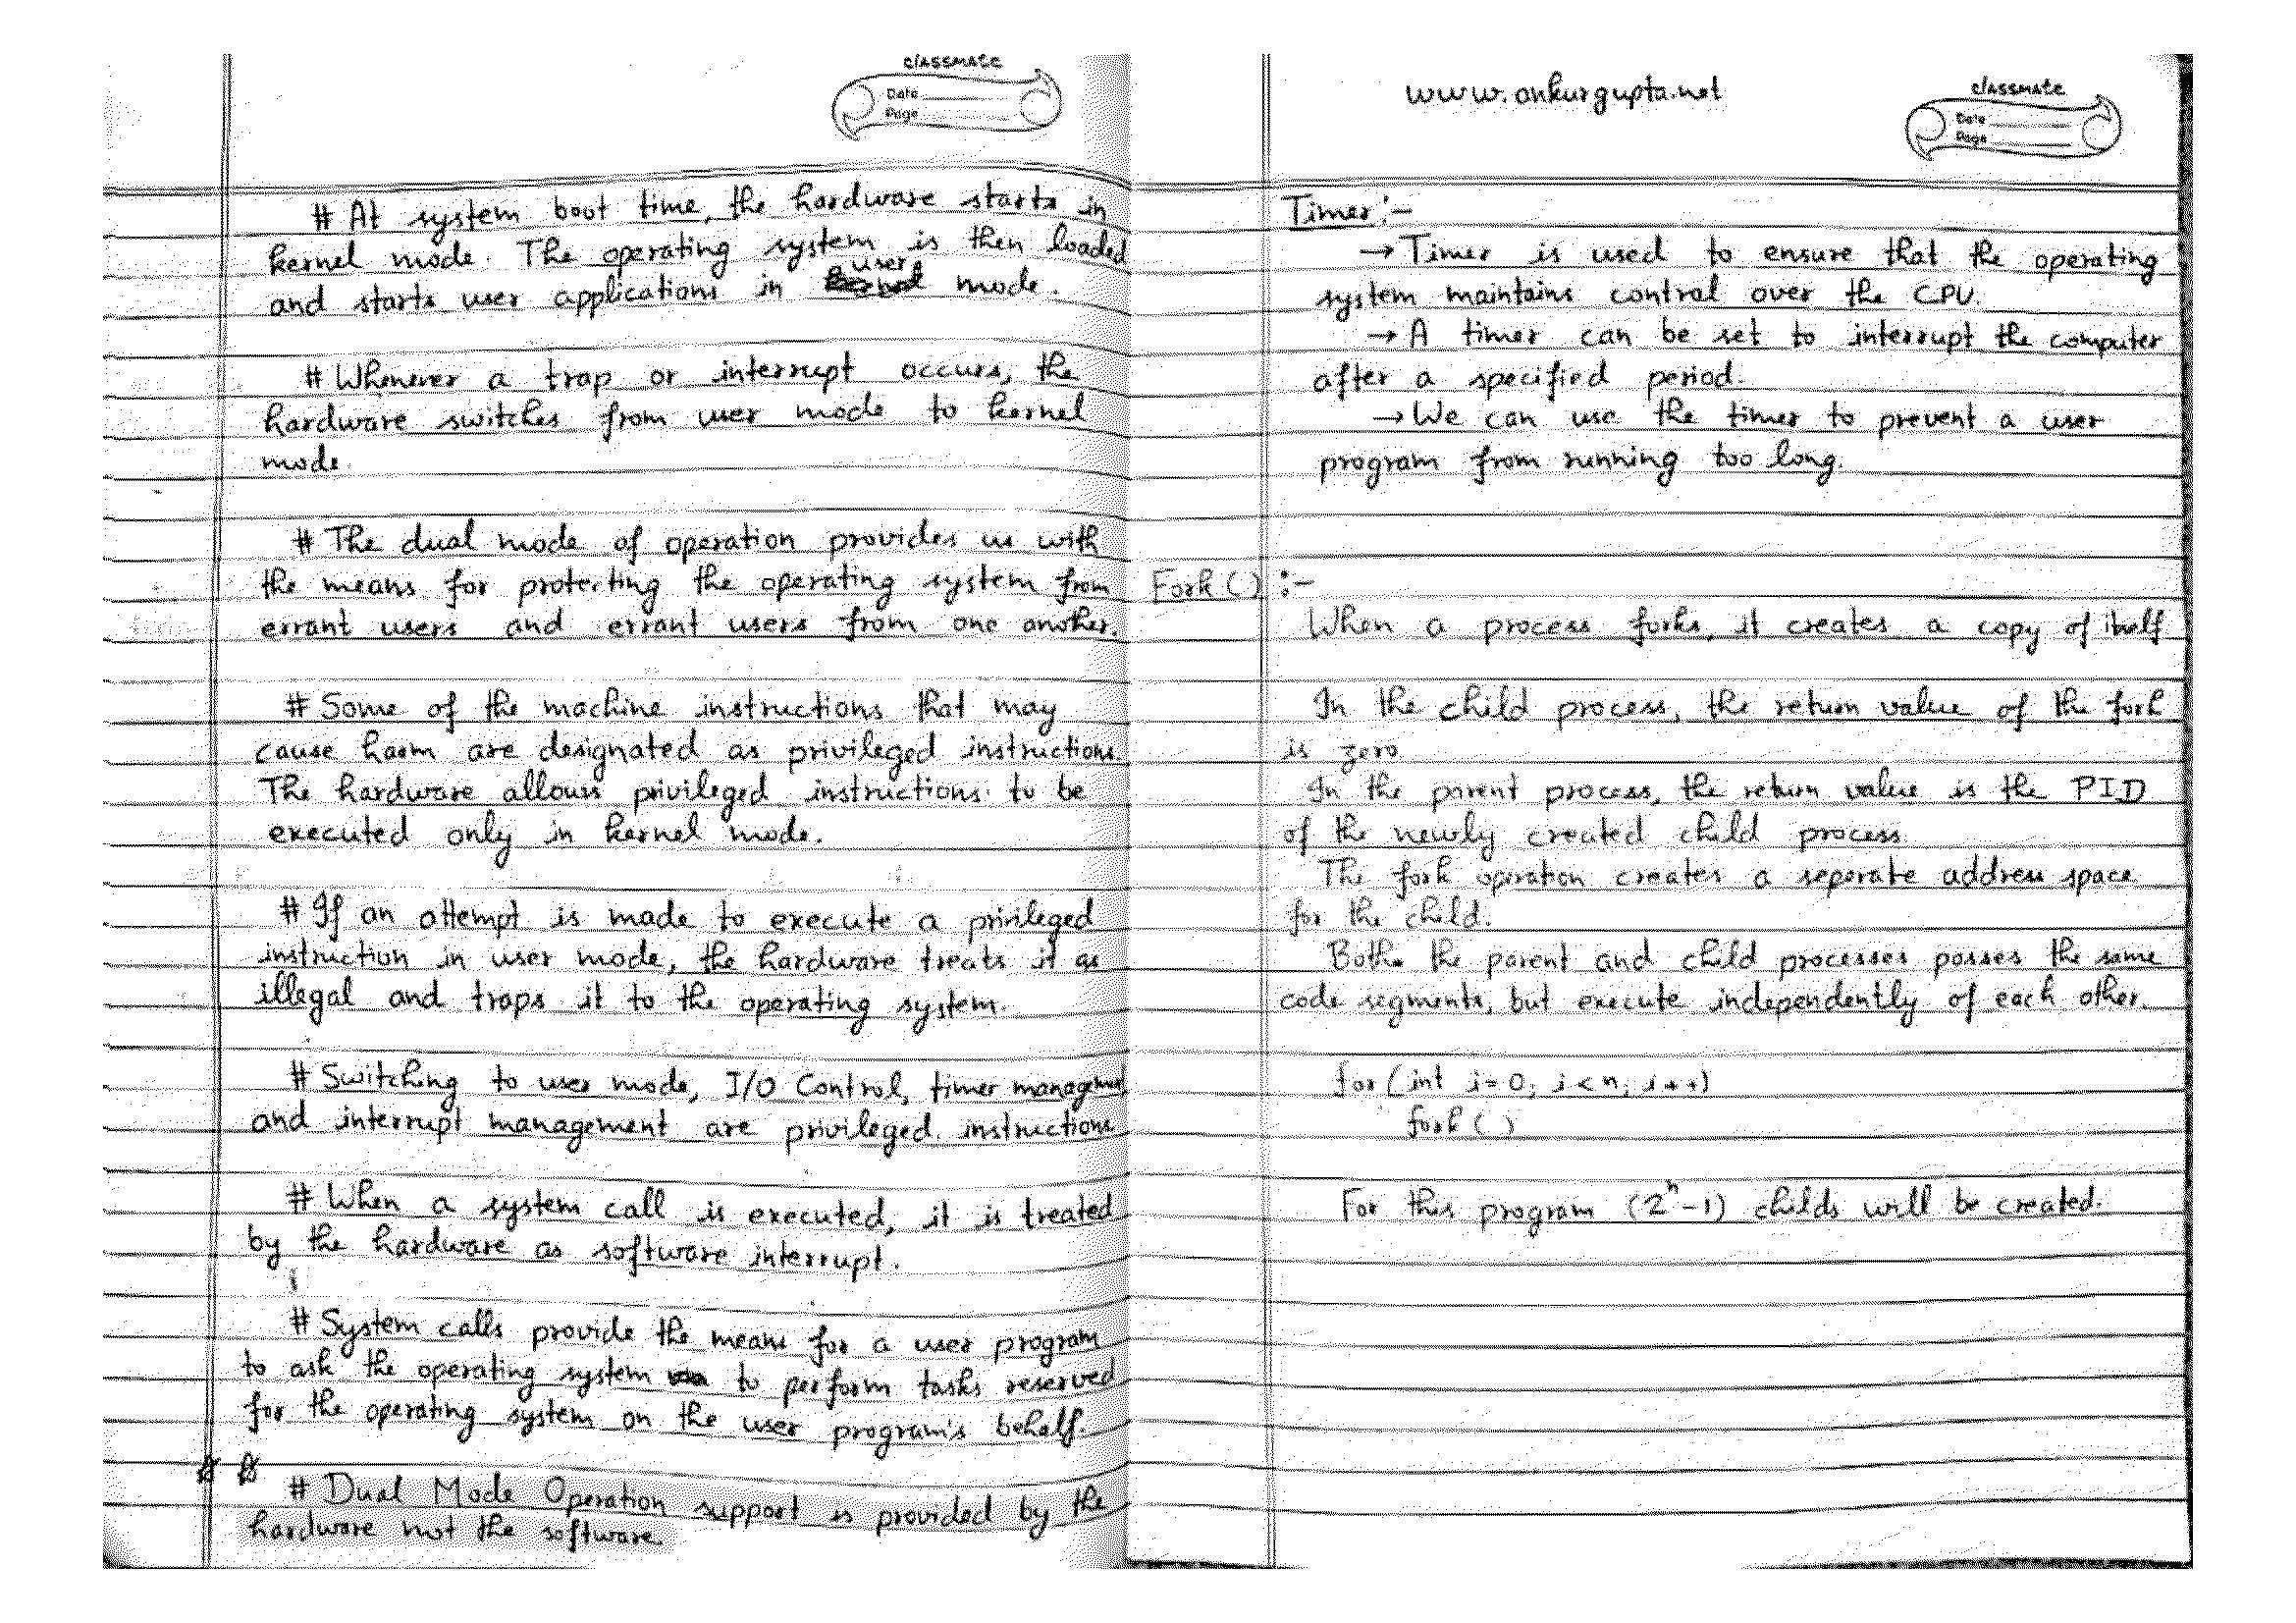 classmate
Date
Page
# At system boot time, the hardware starts in
kernel mode. The operating system is then loaded
and starts user applications in user mode.
# Whenever a trap or interrupt occurs, the
hardware switches from user mode to kernel
mode.
# The dual mode of operation provides us with
the means for protecting the operating system from
errant users and errant users from one another.
# Some of the machine instructions that may
cause harm are designated as privileged instructions.
The hardware allows privileged instructions to be
executed only in kernel mode.
# If an attempt is made to execute a privileged
instruction in user mode, the hardware treats it as
illegal and traps it to the operating system.
# Switching to user mode, I/O Control, timer management
and interrupt management are privileged instructions
# When a system call is executed, it is treated
by the hardware as software interrupt.
# System calls provide the means for a user program
to ask the operating system to perform tasks reserved
for the operating system on the user program's behalf.
# Dual Mode Operation support is provided by the
hardware not the software
www.ankurgupta.net
classmate
Date
Page
Timer:-
→ Timer is used to ensure that the operating
system maintains control over the CPU.
→ A timer can be set to interrupt the computer
after a specified period.
→ We can use the timer to prevent a user
program from running too long.
Fork():-
When a process forks, it creates a copy of itself
In the child process, the return value of the fork
is zero
In the parent process, the return value is the PID
of the newly created child process.
The fork operation creates a seperate address space
for the child.
Both the parent and child processes posses the same
code segments, but execute independently of each other.
for(int i=0; i<n; i++)
fork()
For this program (2ⁿ-1) childs will be created.